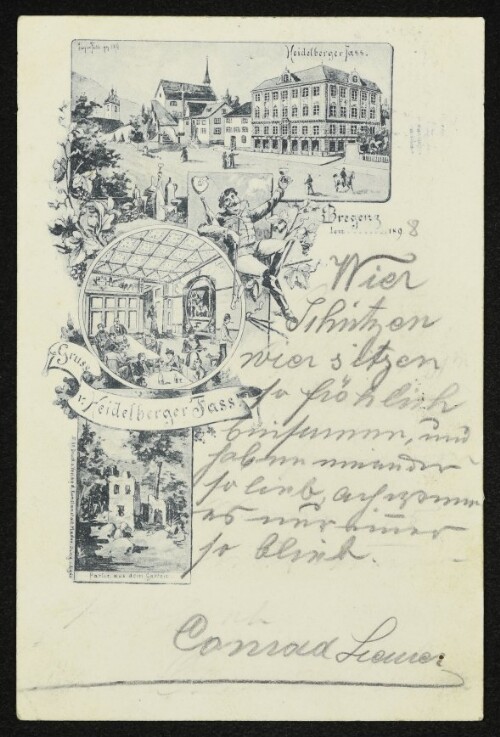 Heidelberger Fass.
Bregenz
den ........ 1898
Gruss
v. Heidelberger Fass
Partie aus dem Garten
Wier
Schützen
wier sitzen
so fröhlich
beisamen, und
haben einander
so lieb, ach
es nur imer
so blieb.
Conrad